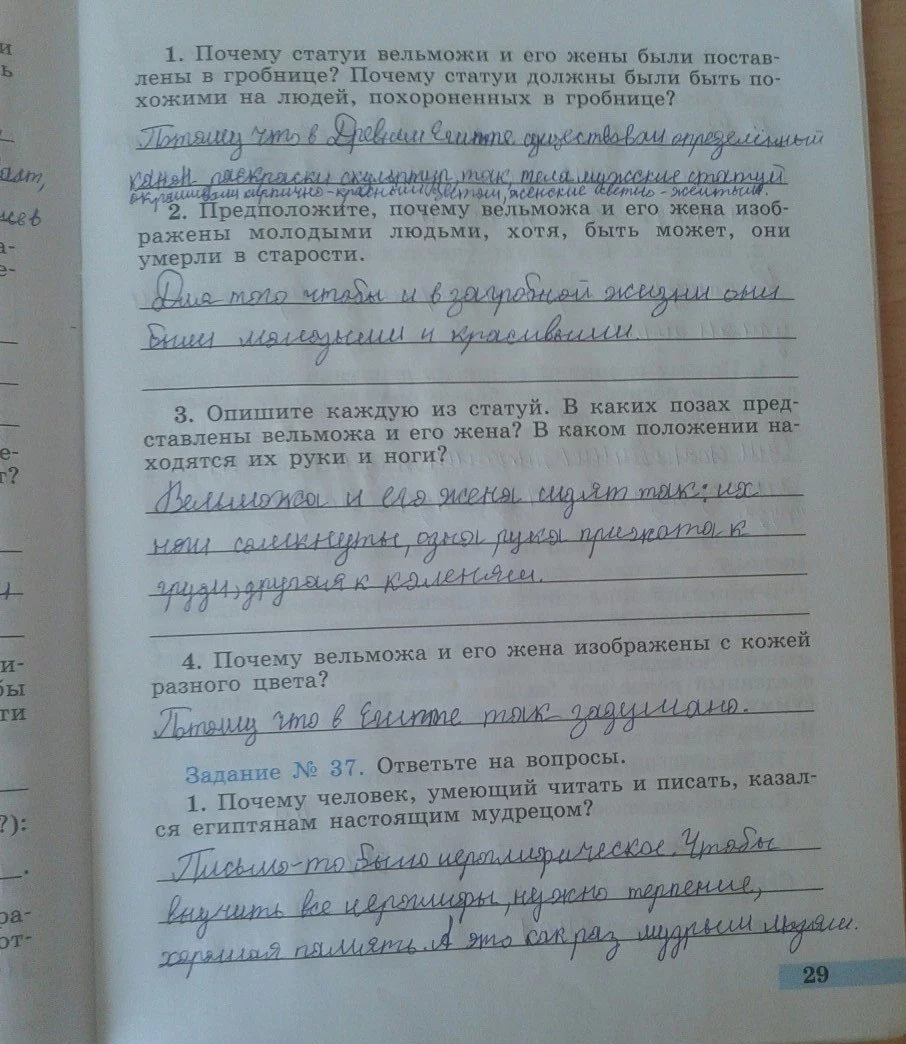 1. Почему статуи вельможи и его жены были постав-
лены в гробнице? Почему статуи должны были быть по-
хожими на людей, похороненных в гробнице?
Потому что в Древнем Египте существовал определённый
канон раскраски скульптур, так тела мужские статуй
окрашивали кирпично-красным цветом, женские светло-жёлтым.
2. Предположите, почему вельможа и его жена изоб-
ражены молодыми людьми, хотя, быть может, они
умерли в старости.
Для того чтобы и в загробной жизни они
были молодыми и красивыми.
3. Опишите каждую из статуй. В каких позах пред-
ставлены вельможа и его жена? В каком положении на-
ходятся их руки и ноги?
Вельможа и его жена сидят так: их
ноги сомкнуты, одна рука прижата к
груди, другая к коленям.
4. Почему вельможа и его жена изображены с кожей
разного цвета?
Потому что в Египте так задумано.
Задание № 37. Ответьте на вопросы.
1. Почему человек, умеющий читать и писать, казал-
ся египтянам настоящим мудрецом?
Письмо-то было иероглифическое. Чтобы
выучить все иероглифы, нужно терпение,
хорошая память. А это как раз мудрым людям.
29
и
ь
ает,
цев
а-
е-
е-
т?
и-
бы
ти
?):
ра-
от-